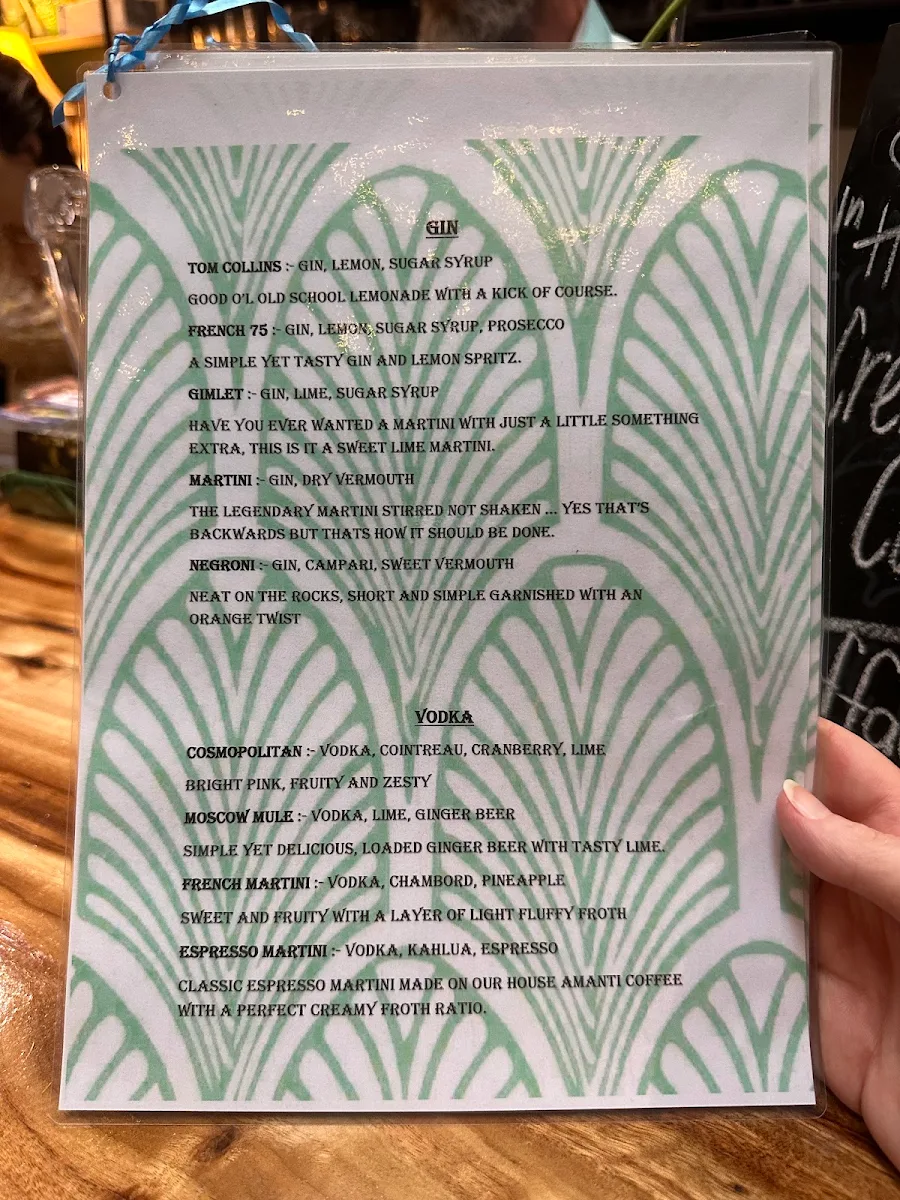 GIN
TOM COLLINS :- GIN, LEMON, SUGAR SYRUP
GOOD O'L OLD SCHOOL LEMONADE WITH A KICK OF COURSE.
FRENCH 75 :- GIN, LEMON, SUGAR SYRUP, PROSECCO
A SIMPLE YET TASTY GIN AND LEMON SPRITZ.
GIMLET :- GIN, LIME, SUGAR SYRUP
HAVE YOU EVER WANTED A MARTINI WITH JUST A LITTLE SOMETHING
EXTRA, THIS IS IT A SWEET LIME MARTINI.
MARTINI :- GIN, DRY VERMOUTH
THE LEGENDARY MARTINI STIRRED NOT SHAKEN ... YES THAT'S
BACKWARDS BUT THATS HOW IT SHOULD BE DONE.
NEGRONI :- GIN, CAMPARI, SWEET VERMOUTH
NEAT ON THE ROCKS, SHORT AND SIMPLE GARNISHED WITH AN
ORANGE TWIST
VODKA
COSMOPOLITAN :- VODKA, COINTREAU, CRANBERRY, LIME
BRIGHT PINK, FRUITY AND ZESTY
MOSCOW MULE :- VODKA, LIME, GINGER BEER
SIMPLE YET DELICIOUS, LOADED GINGER BEER WITH TASTY LIME.
FRENCH MARTINI :- VODKA, CHAMBORD, PINEAPPLE
SWEET AND FRUITY WITH A LAYER OF LIGHT FLUFFY FROTH
ESPRESSO MARTINI :- VODKA, KAHLUA, ESPRESSO
CLASSIC ESPRESSO MARTINI MADE ON OUR HOUSE AMANTI COFFEE
WITH A PERFECT CREAMY FROTH RATIO.